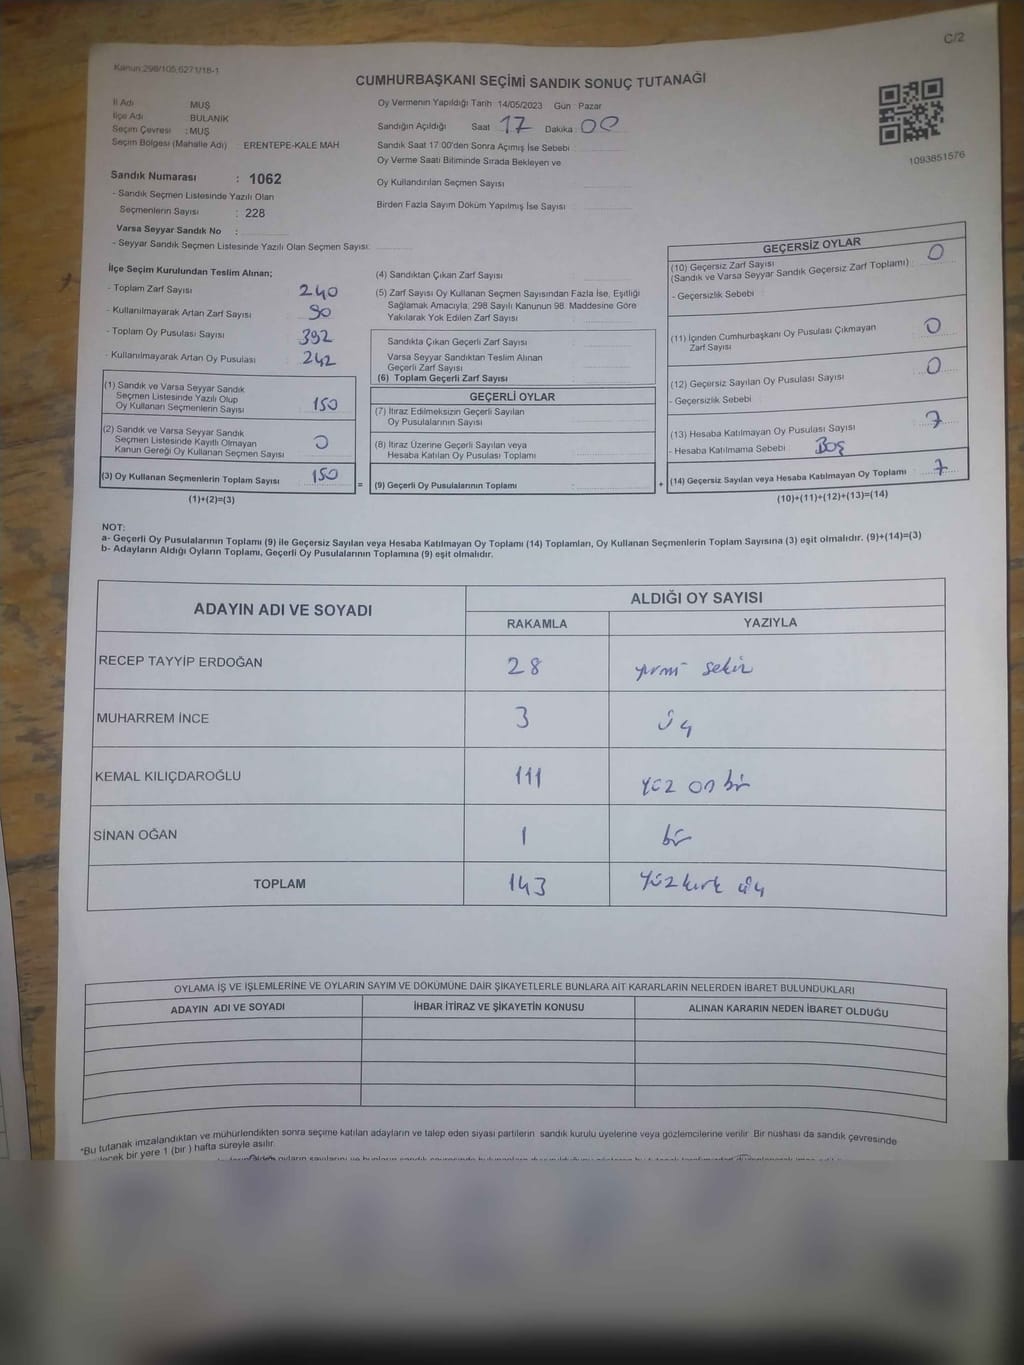 C/2
Kanun:298/105,6271/18-1
CUMHURBAŞKANI SEÇİMİ SANDIK SONUÇ TUTANAĞI
İl Adı MUŞ
İlçe Adı BULANIK
Seçim Çevresi :MUŞ
Seçim Bölgesi (Mahalle Adı) ERENTEPE-KALE MAH
Oy Vermenin Yapıldığı Tarih 14/05/2023 Gün Pazar
Sandığın Açıldığı Saat 17 Dakika 00
Sandık Saat 17:00'den Sonra Açımış İse Sebebi
Oy Verme Saati Bitiminde Sırada Bekleyen ve
Oy Kullandırılan Seçmen Sayısı
Birden Fazla Sayım Döküm Yapılmış İse Sayısı
1093851576
Sandık Numarası : 1062
- Sandık Seçmen Listesinde Yazılı Olan
Seçmenlerin Sayısı : 228
Varsa Seyyar Sandık No :
- Seyyar Sandık Seçmen Listesinde Yazılı Olan Seçmen Sayısı:
İlçe Seçim Kurulundan Teslim Alınan;
- Toplam Zarf Sayısı 240
- Kullanılmayarak Artan Zarf Sayısı 90
- Toplam Oy Pusulası Sayısı 392
- Kullanılmayarak Artan Oy Pusulası 242
(1) Sandık ve Varsa Seyyar Sandık
Seçmen Listesinde Yazılı Olup
Oy Kullanan Seçmenlerin Sayısı 150
(2) Sandık ve Varsa Seyyar Sandık
Seçmen Listesinde Kayıtlı Olmayan
Kanun Gereği Oy Kullanan Seçmen Sayısı 0
(3) Oy Kullanan Seçmenlerin Toplam Sayısı 150
(1)+(2)=(3)
(4) Sandıktan Çıkan Zarf Sayısı
(5) Zarf Sayısı Oy Kullanan Seçmen Sayısından Fazla İse, Eşitliği
Sağlamak Amacıyla, 298 Sayılı Kanunun 98. Maddesine Göre
Yakılarak Yok Edilen Zarf Sayısı :
Sandıkta Çıkan Geçerli Zarf Sayısı
Varsa Seyyar Sandıktan Teslim Alınan
Geçerli Zarf Sayısı
(6) Toplam Geçerli Zarf Sayısı
GEÇERLİ OYLAR
(7) İtiraz Edilmeksizin Geçerli Sayılan
Oy Pusulalarının Sayısı
(8) İtiraz Üzerine Geçerli Sayılan veya
Hesaba Katılan Oy Pusulası Toplamı
= (9) Geçerli Oy Pusulalarının Toplamı :
GEÇERSİZ OYLAR
(10) Geçersiz Zarf Sayısı
(Sandık ve Varsa Seyyar Sandık Geçersiz Zarf Toplamı) : 0
- Geçersizlik Sebebi
(11) İçinden Cumhurbaşkanı Oy Pusulası Çıkmayan
Zarf Sayısı 0
(12) Geçersiz Sayılan Oy Pusulası Sayısı 0
- Geçersizlik Sebebi
(13) Hesaba Katılmayan Oy Pusulası Sayısı 7
- Hesaba Katılmama Sebebi Boş
+ (14) Geçersiz Sayılan veya Hesaba Katılmayan Oy Toplamı 7
(10)+(11)+(12)+(13)=(14)
NOT:
a- Geçerli Oy Pusulalarının Toplamı (9) ile Geçersiz Sayılan veya Hesaba Katılmayan Oy Toplamı (14) Toplamları, Oy Kullanan Seçmenlerin Toplam Sayısına (3) eşit olmalıdır. (9)+(14)=(3)
b- Adayların Aldığı Oyların Toplamı, Geçerli Oy Pusulalarının Toplamına (9) eşit olmalıdır.
ADAYIN ADI VE SOYADI ALDIĞI OY SAYISI
RAKAMLA YAZIYLA
RECEP TAYYİP ERDOĞAN 28 yirmi sekiz
MUHARREM İNCE 3 üç
KEMAL KILIÇDAROĞLU 111 yüz on bir
SİNAN OĞAN 1 bir
TOPLAM 143 yüz kırk üç
OYLAMA İŞ VE İŞLEMLERİNE VE OYLARIN SAYIM VE DÖKÜMÜNE DAİR ŞİKAYETLERLE BUNLARA AİT KARARLARIN NELERDEN İBARET BULUNDUKLARI
ADAYIN ADI VE SOYADI İHBAR İTİRAZ VE ŞİKAYETİN KONUSU ALINAN KARARIN NEDEN İBARET OLDUĞU
*Bu tutanak imzalandıktan ve mühürlendikten sonra seçime katılan adayların ve talep eden siyasi partilerin sandık kurulu üyelerine veya gözlemcilerine verilir. Bir nüshası da sandık çevresinde
bir yere 1 (bir) hafta süreyle asılır.